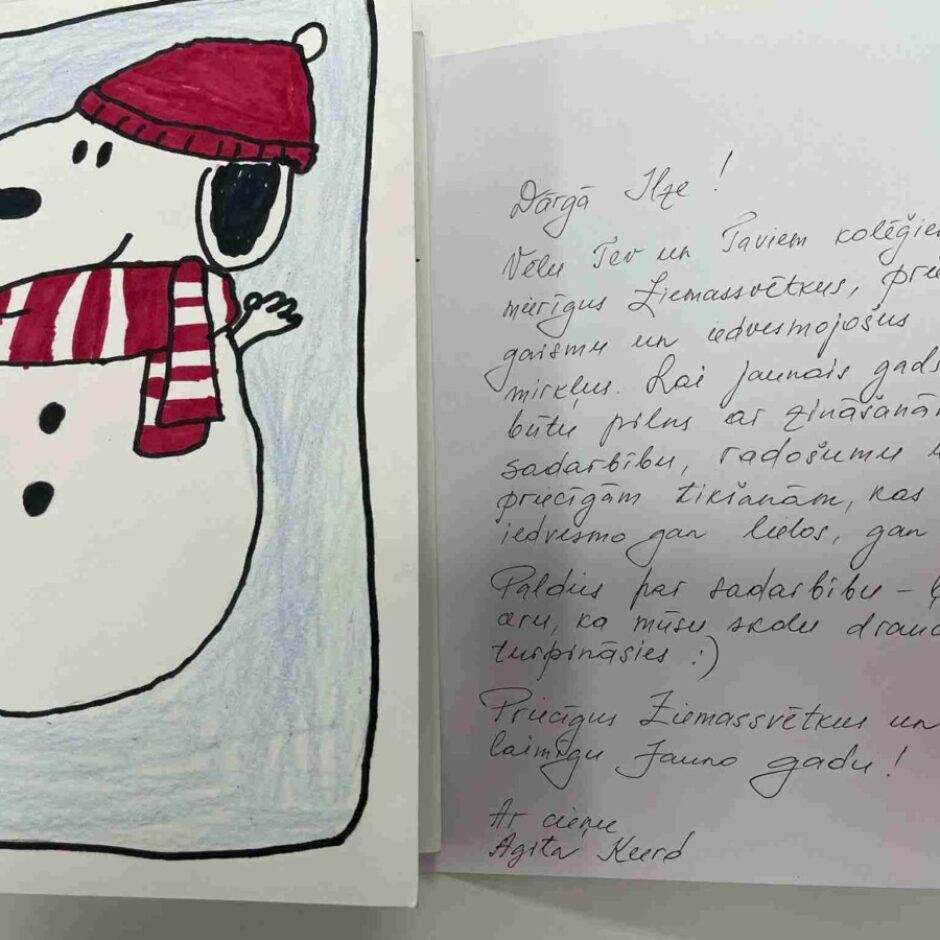 Dārgā Ilze!
Vēlu Tev un Taviem
mierīgus Ziemassvētkus,
gaismu un iedvesmojošus
mirkļus. Lai jaunais
būtu pilns ar
sadarbību, radošumu
priecīgām tikšanām, kas
iedvesmo gan lielos, gan
Paldies par sadarbību –
ka mūsu skolu
turpināsies :)
Priecīgus Ziemassvētkus un
laimīgu Jauno gadu!
Ar cieņu
Agita